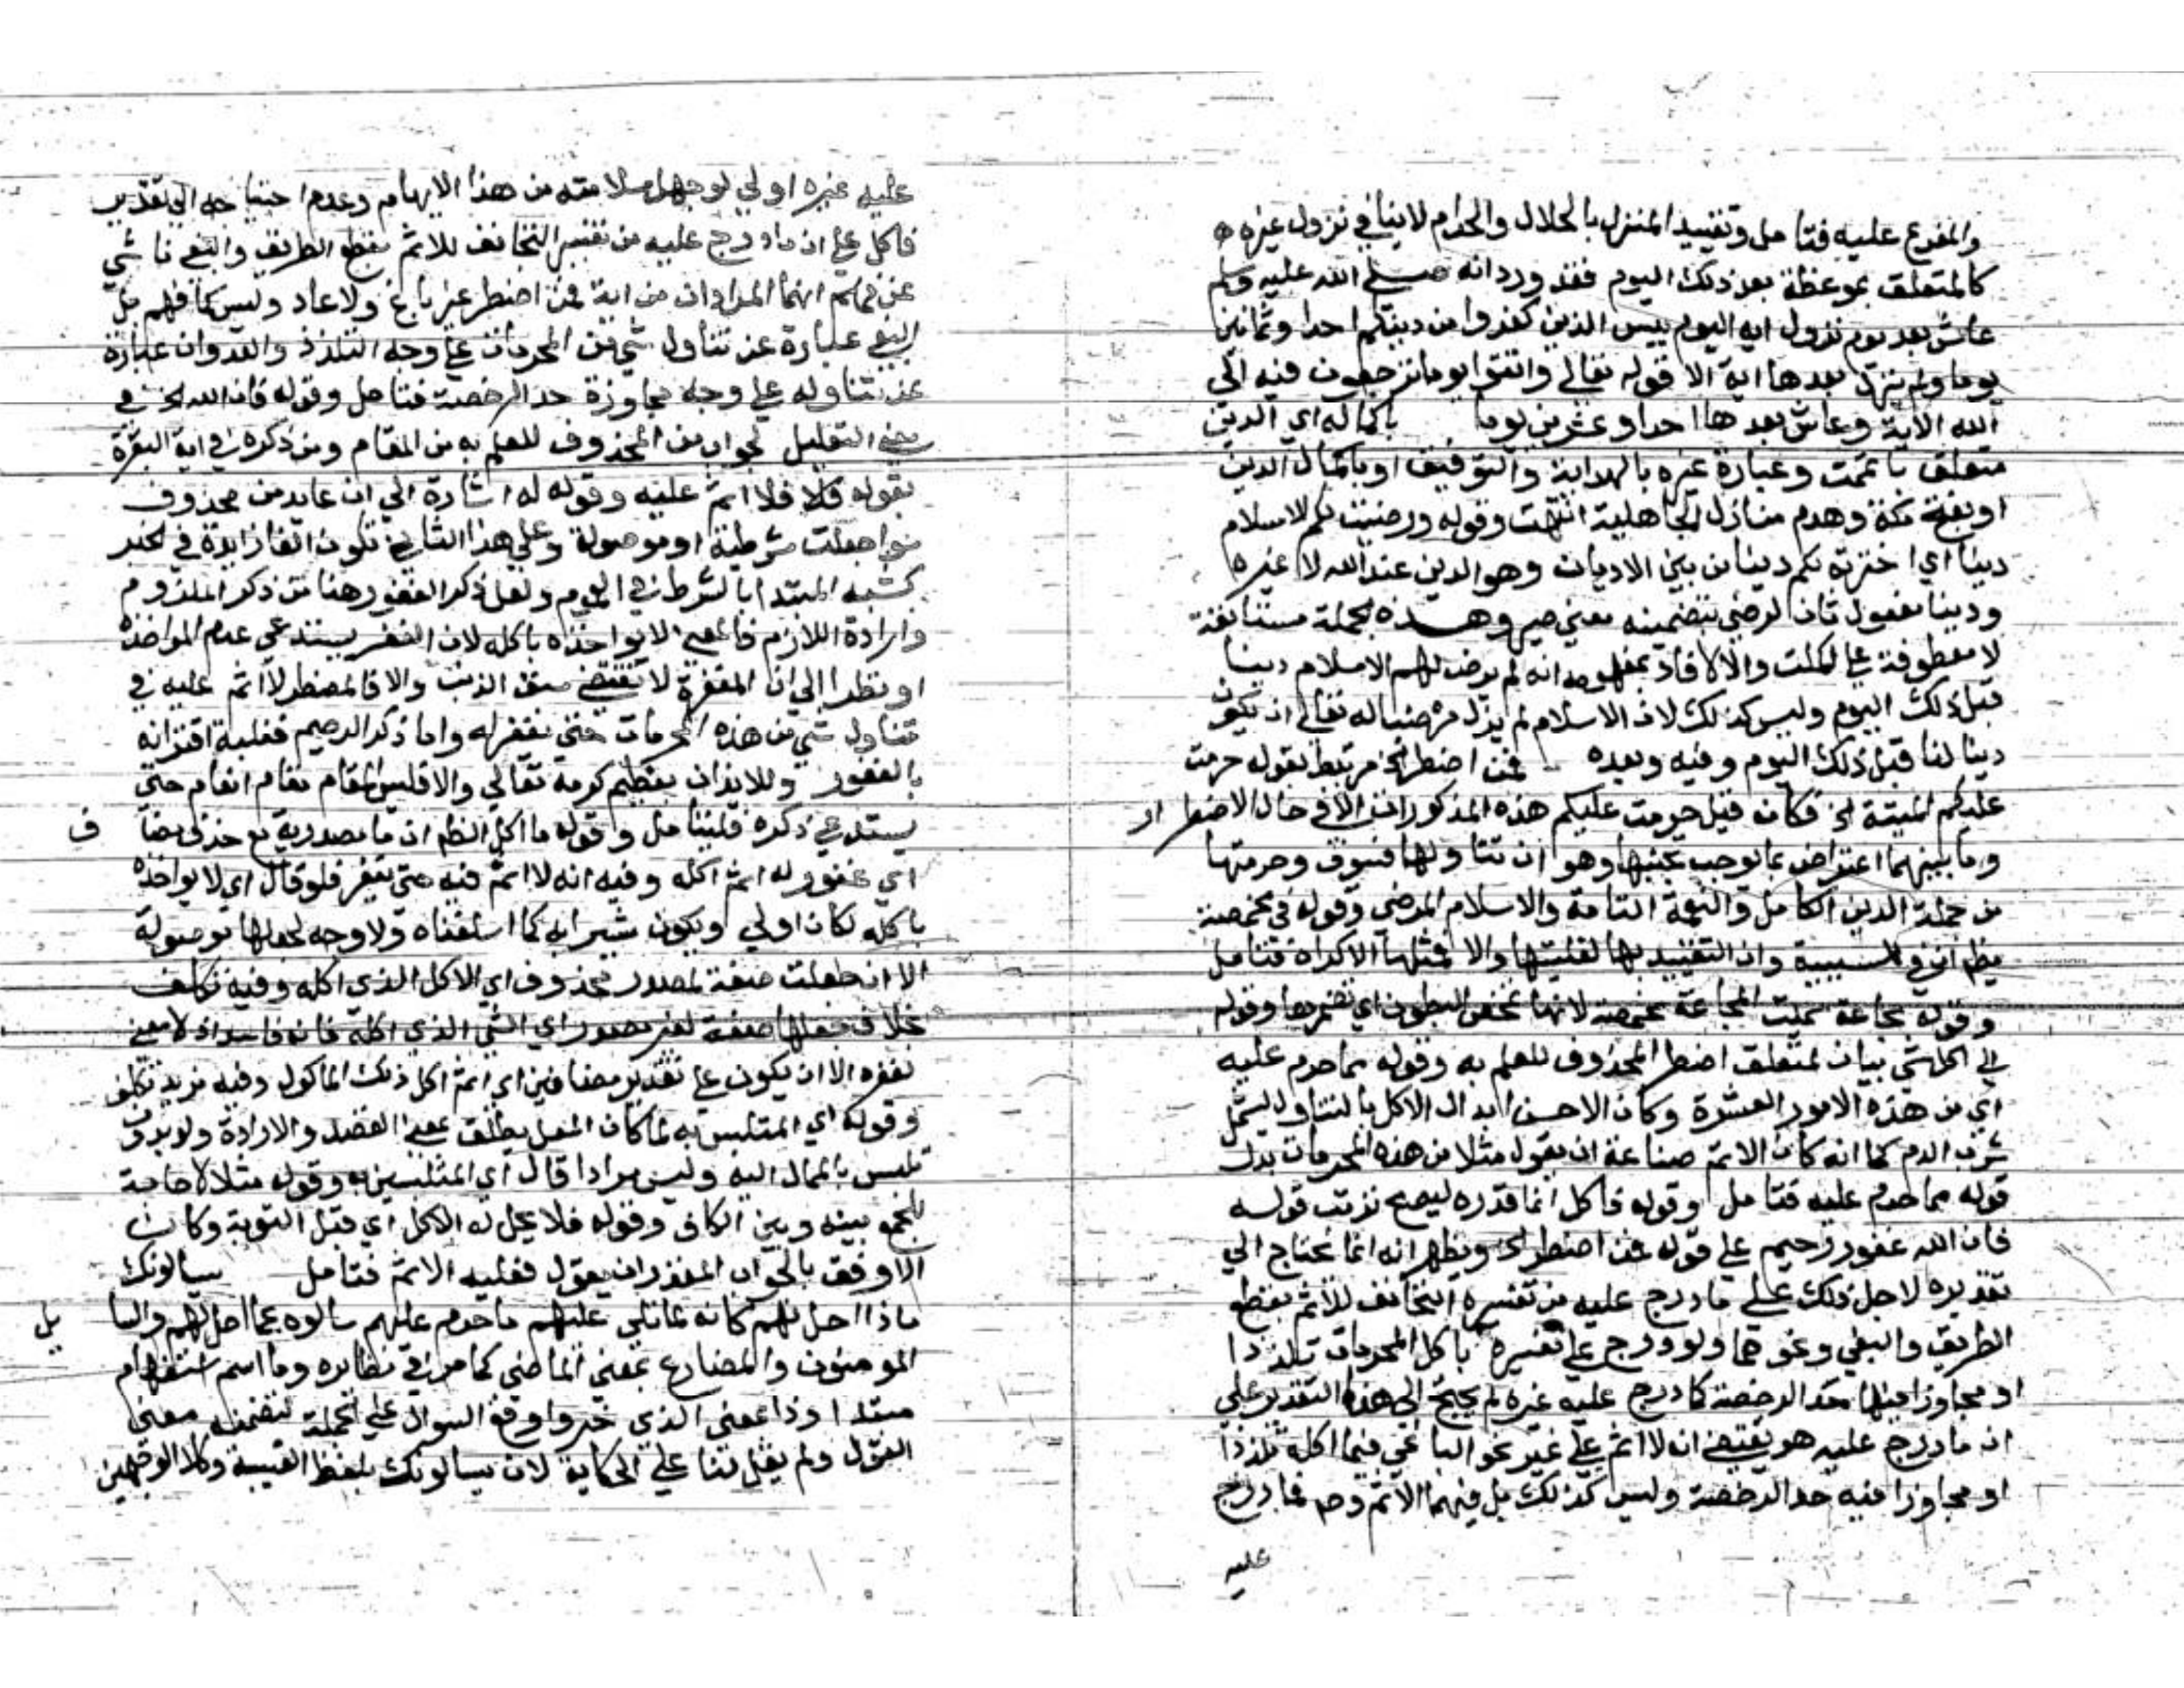 والمفرع عليه فتامل وتقييد المنزل بالحلال والحرام لا ينافي نزول غيره
كالمتعلق بموعظة بعد ذلك اليوم فقد ورد انه صلى الله عليه وسلم
عاش بعد يوم نزول ايه اليوم ييس الذين كفروا من دينكم احدا وثمانين
يوما ولم ينزل بعدها اية الا قوله تعالى واتقوا يوما ترجعون فيه الى
الله الاية وعاش بعدها احدا وعشرين يوما باكماله اي الدين
متعلق باتممت وعبارة غيره بالهداية والتوفيق او باكمال الدين
او بفتح مكة وهدم منازل الجاهلية انتهت وقوله ورضيت لكم الاسلام
دينا اي اخترته لكم دينا من بين الاديان وهو الدين عند الله لا غيره
ودينا مفعول ثان لرضي بتضمينه معنى صير وهذه الجملة مستانفة
لا معطوفة على اكملت والا لافاد بمفهومه انه لم يرض لهم الاسلام دينا
قبل ذلك اليوم وليس كذلك لان الاسلام لم يزل مرضيا له تعالى ان يكون
دينا لنا قبل ذلك اليوم وفيه وبعده فمن اضطر الخ مرتبط بقوله حرمت
عليكم الميتة الخ فكانه قيل حرمت عليكم هذه المذكورات الا في حال الاضطرار
وما بينهما اعتراض بما يوجب تجنبها وهو ان تناولها فسوق وحرمتها
من جملة الدين الكامل والنعمة التامة والاسلام المرضي وقوله في مخمصة
يظهر ان في للسببية وان التقييد بها لغلبتها والا فمثلها الاكراه فتامل
وقوله مجاعة سميت المجاعة مخمصة لانها تخمص البطون اي تضمرها وقوله
الى اكل شي بيان لمتعلق اضطر المحذوف للعلم به وقوله مما حرم عليه
اي من هذه الامور العشرة وكان الاحسن ابدال الاكل بالتناول ليشمل
شرب الدم كما انه كان الاتم صناعة ان يقول مثلا من هذه المحرمات بدل
قوله مما حرم عليه فتامل وقوله فاكل انما قدره ليصح ترتب قوله
فان الله غفور رحيم على قوله فمن اضطر الخ ويظهر انه انما يحتاج الى
تقديره لاجل ذلك على ما درج عليه من تفسيره المتجانف للاثم بقطع
الطريق والبغي ونحوهما ولو درج على تفسيره باكل المحرمات تلذذا
او مجاوزا فيها حد الرخصة كما درج عليه غيره لم يحتج الى هذا التقدير على
ان ما درج عليه هو يقتضي انه لا اثم على غير نحو الباغي فيما اكله تلذذا
او مجاوزا فيه حد الرخصة وليس كذلك بل فيهما الاثم فما درج
عليه
عليه غيره اولى لوجهين سلامته من هذا الايهام وعدم احتياجه الى تقدير
فاكل على ان ما درج عليه من تفسير المتجانف للاثم بقطع الطريق والبغي ناشي
عن انهما المرادان من اية فمن اضطر غير باغ ولا عاد وليس كما فهم بل
البغي عبارة عن تناول شي من المحرمات على وجه التلذذ والعدوان عبارة
عن تناوله على وجه مجاوزة حد الرخصة فتامل وقوله فان الله الخ في
معنى التعليل لجواب من المحذوف للعلم به من المقام ومن ذكره في اية البقرة
بقوله فلا اثم عليه وقوله له اشارة الى ان عايد من محذوف
سوا جعلت شرطية او موصولة وعلى هذا الثاني تكون الفا زايدة في الخبر
لشبه المبتدا بالشرط في العموم ولعل ذكر الغفور هنا من ذكر الملزوم
وارادة اللازم فالمعنى لا يواخذه باكله لان الغفر يستدعي عدم المواخذة
او نظرا الى ان المغفرة لا تقتضي سبق الذنب والا فالمضطر لا اثم عليه في
تناول شي من هذه المحرمات حتى يغفر له واما ذكر الرحيم فلغلبة اقترانه
بالغفور وللايذان بعظيم كرمه تعالى والا فليس المقام مقام انعام حتى
يستدعي ذكره فليتامل وقوله ما اكل انظهر ان ما مصدرية مع حذف مضاف
اي غفور له اثم اكله وفيه انه لا اثم فيه حتى يغفر فلو قال اي لا يواخذه
باكله لكان اولى ويكون مشيرا به كما اسلفناه ولا وجه لجعلها موصولة
الا ان جعلت صفة لمصدر محذوف اي الاكل الذي اكله وفيه تكلف
بخلاف جعلها صفة لغير مصدر اي الشي الذي اكله فانه فاسد اذ لا معنى
لغفره الا ان يكون على تقدير مضافين اي اثم اكل ذلك الماكول وفيه مزيد تكلف
وقوله اي المتلبس به لما كان الميل يطلق بمعنى القصد والارادة ولو بدون
تلبس بالممال اليه وليس مرادا قال اي المتلبسين به وقوله مثلا لا حاجة
للجمع بينه وبين الكاف وقوله فلا يحل له الاكل اي قبل التوبة وكان
الاوفق بالجواب المقدر ان يقول فعليه الاثم فتامل يسالونك
ماذا احل لهم كانه لما تلي عليهم ما حرم عليهم سالوه عما احل لهم والسايل
المومنون والمضارع بمعنى الماضي كما مر في نظايره وما اسم استفهام
مبتدا وذا بمعنى الذي خبر واوقع السوال على الجملة لتضمنه معنى
القول ولم يقل لنا على الحكاية لان يسالونك بلفظ الغيبة وكلا الوجهين